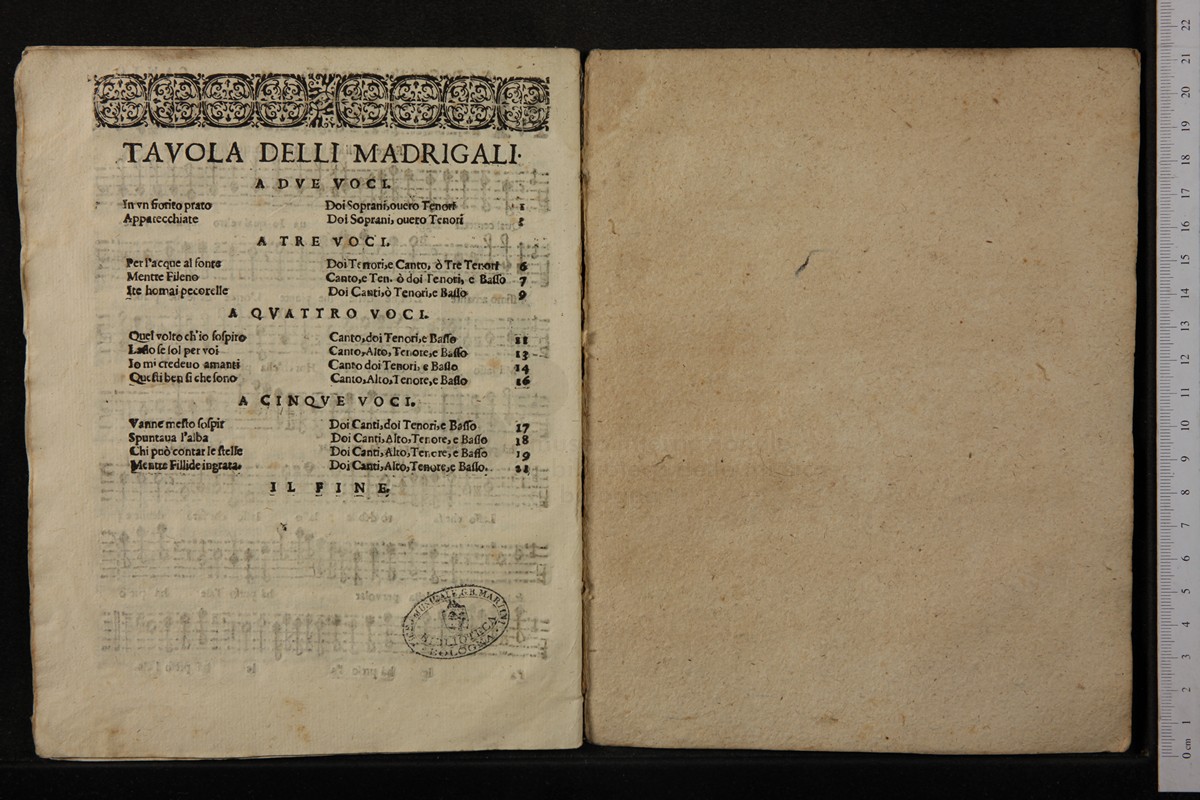 TAVOLA DELLI MADRIGALI.
A DVE VOCI.
In vn fiorito prato Doi Soprani, ouero Tenori 1
Apparecchiate Doi Soprani, ouero Tenori
A TRE VOCI.
Per l'acque al fonte Doi Tenori, e Canto, ò Tre Tenori 6
Mentre Fileno Canto, e Ten. ò doi Tenori, e Basso 7
Ite homai pecorelle Doi Canti, ò Tenori, e Basso 9
A QVATTRO VOCI.
Quel volto ch'io sospiro Canto, doi Tenori, e Basso 11
Lasso se sol per voi Canto, Alto, Tenore, e Basso 13
Io mi credeuo amanti Canto doi Tenori, e Basso 14
Questi ben si che sono Canto, Alto, Tenore, e Basso 16
A CINQVE VOCI.
Vanne mesto sospir Doi Canti, doi Tenori, e Basso 17
Spuntaua l'alba Doi Canti, Alto, Tenore, e Basso 18
Chi può contar le stelle Doi Canti, Alto, Tenore, e Basso 19
Mentre Fillide ingrata. Doi Canti, Alto, Tenore, e Basso. 21
IL FINE.
LIC. MUSICALE G.B. MARTINI
BIBLIOTECA
BOLOGNA
0 cm 1 2 3 4 5 6 7 8 9 10 11 12 13 14 15 16 17 18 19 20 21 22